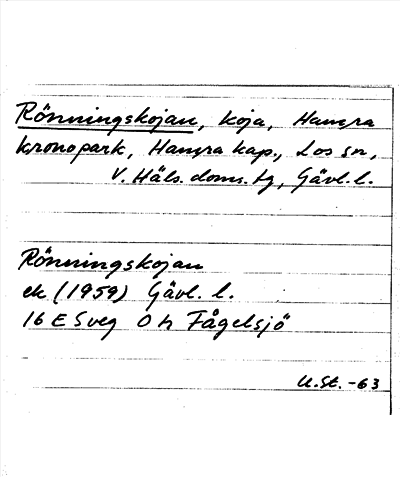 Rönningskojan, koja, Hamra
kronopark, Hamra kap., Los sn,
V. Häls. doms. tg, Gävl. l.
Rönningskojan
ek (1959) Gävl. l.
16 E Sveg O h Fågelsjö
U. St. -63